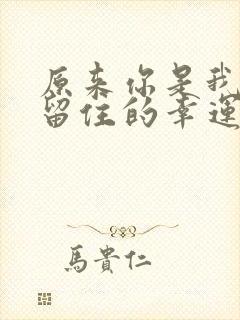 原来你是我
留住的幸運
馬貴仁